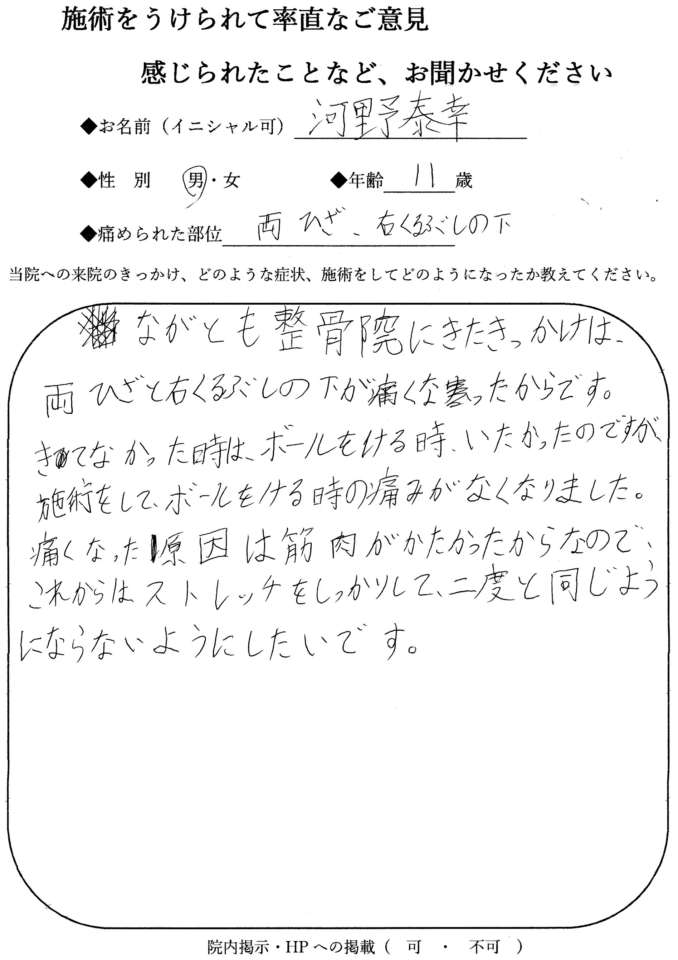 施術をうけられて率直なご意見
感じられたことなど、お聞かせください
◆お名前（イニシャル可） 河野泰幸
◆性　別　男・女　◆年齢 11 歳
◆痛められた部位 両ひざ、右くるぶしの下
当院への来院のきっかけ、どのような症状、施術をしてどのようになったか教えてください。
ながとも整骨院にきたきっかけは、
両ひざと右くるぶしの下が痛くなったからです。
きてなかった時は、ボールをける時、いたかったのですが、
施術をして、ボールをける時の痛みがなくなりました。
痛くなった原因は筋肉がかたかったからなので、
これからはストレッチをしっかりして、二度と同じよう
にならないようにしたいです。
院内掲示・HPへの掲載（　可　・　不可　）